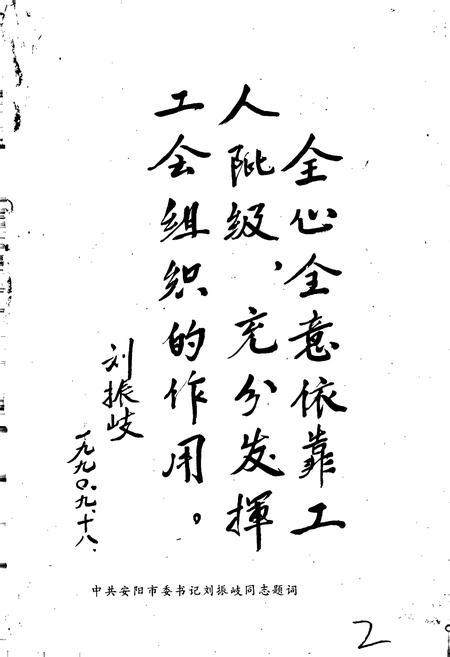 全心全意依靠工
人阶级，充分发挥
工会组织的作用。
刘振岐
一九九〇、九、十八、
中共安阳市委书记刘振岐同志题词
2